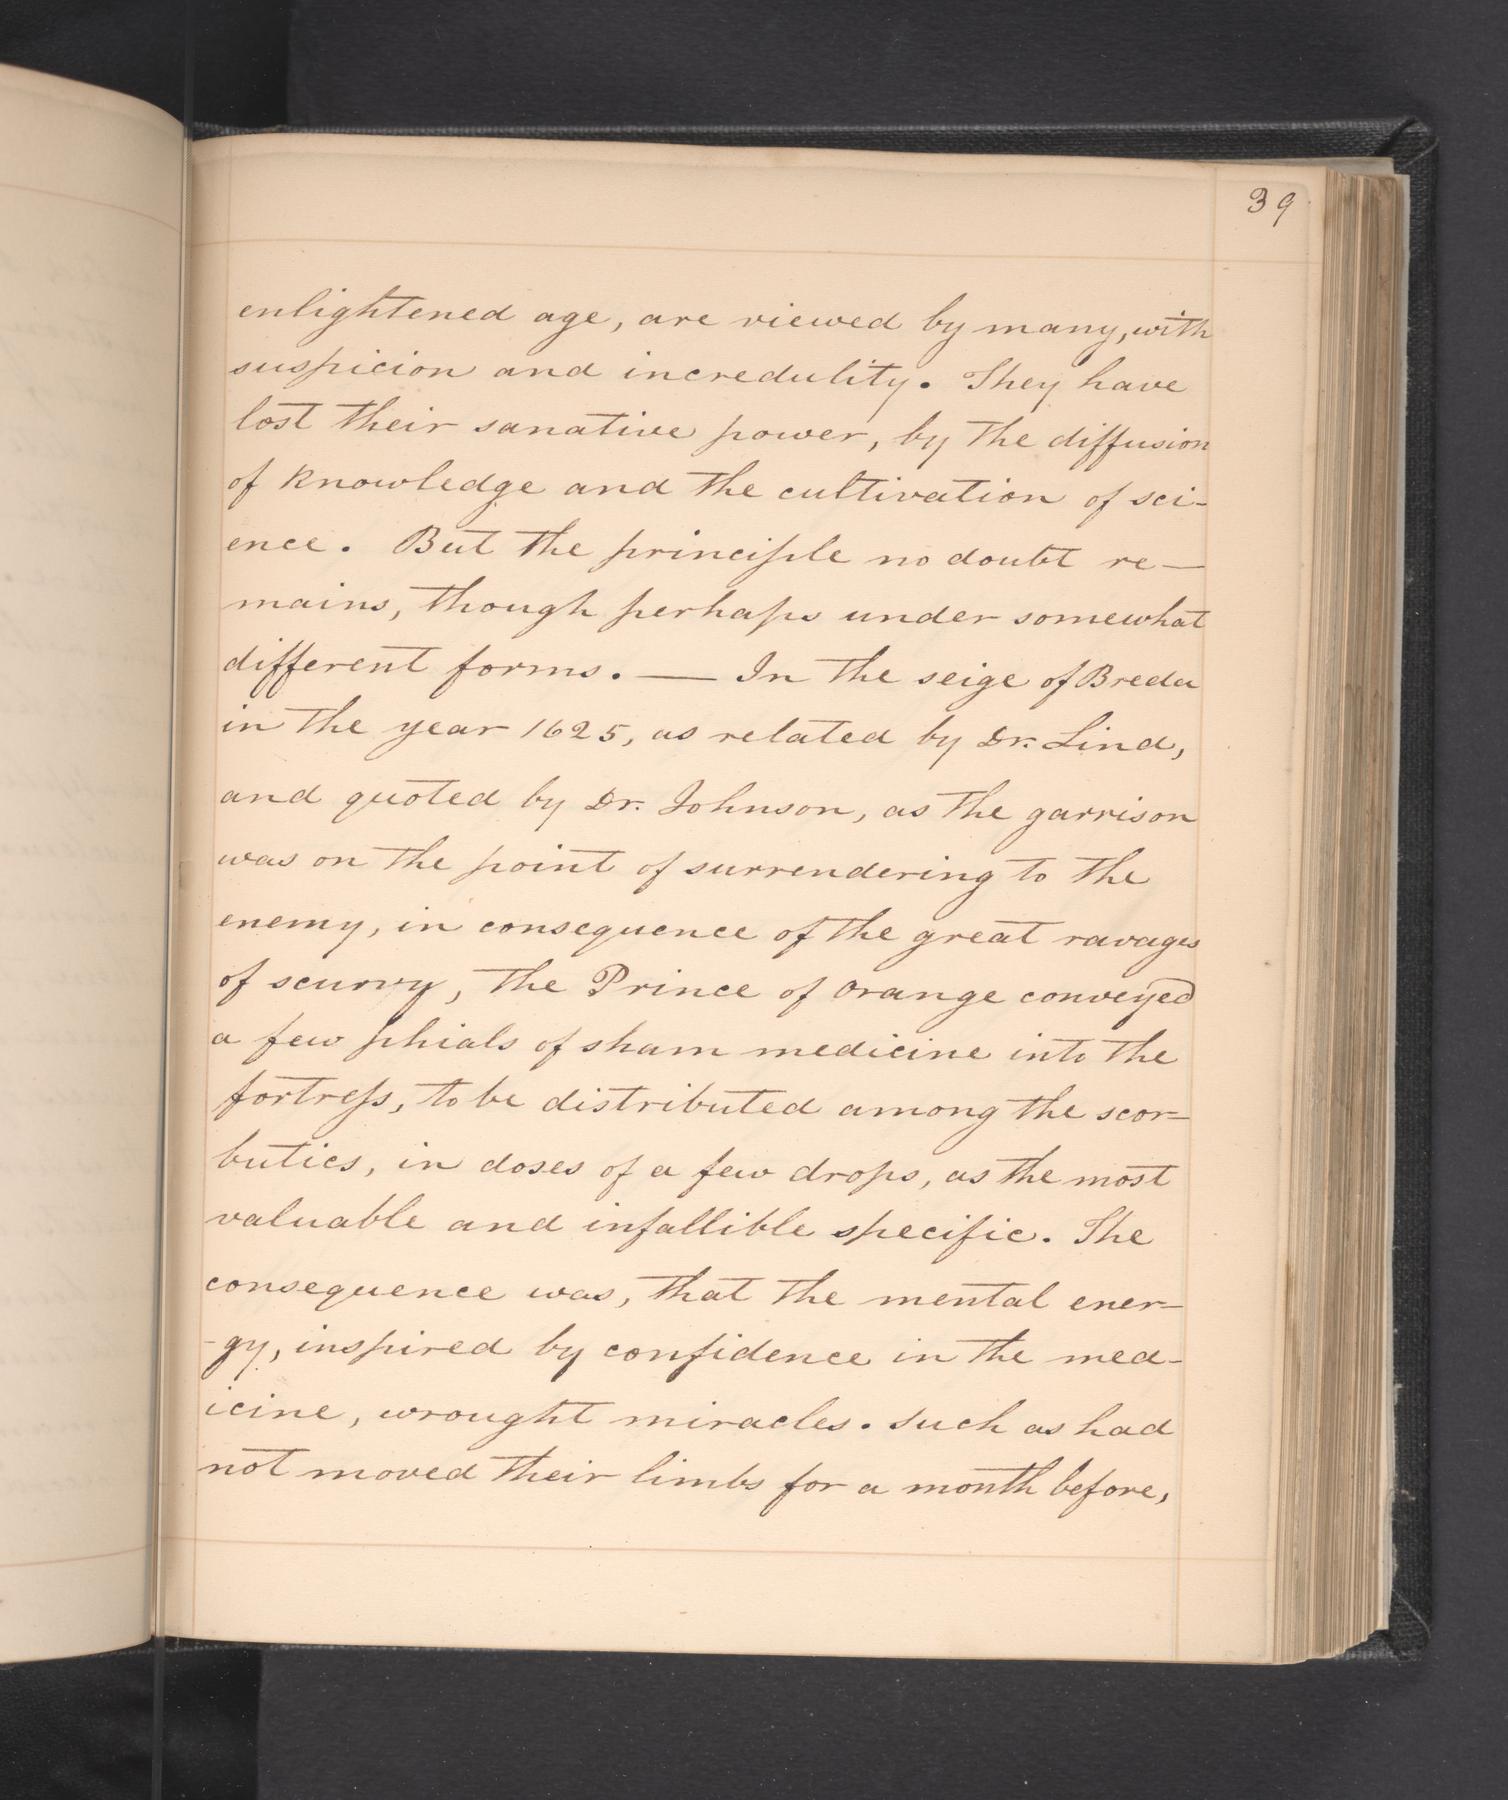 39
enlightened age, are viewed by many, with
suspicion and incredulity. They have
lost their sanative power, by the diffusion
of knowledge and the cultivation of sci-
ence. But the principle no doubt re-
mains, though perhaps under somewhat
different forms. — In the seige of Breda
in the year 1625, as related by Dr. Lind,
and quoted by Dr. Johnson, as the garrison
was on the point of surrendering to the
enemy, in consequence of the great ravages
of scurvy, the Prince of Orange conveyed
a few phials of sham medicine into the
fortress, to be distributed among the scor=
butics, in doses of a few drops, as the most
valuable and infallible specific. The
consequence was, that the mental ener=
-gy, inspired by confidence in the med-
icine, wrought miracles. Such as had
not moved their limbs for a month before,